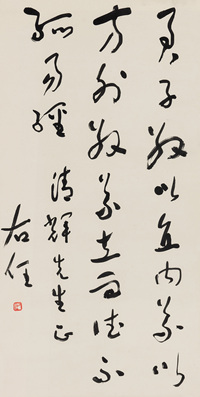 君子敬以直內義以
方外敬義立而德不
孤易經
清輝先生正
右任